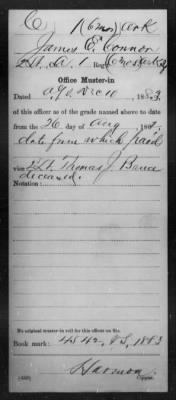 C 1 (6 mos) Ark
James E. Connor
2 Lt, Co. 1 Reg
Office Muster-in
Dated A.G.O. Dec 10, 1883,
of this officer as of the grade named above to date
from the 26 day of Aug, 186
date from which paid
vice 2 Lt. Thomas J. Bruce
deceased.
Notation:
No original muster-in roll for this officer on file.
Book mark: 4542, V.S., 1883
Harmon
Copyist.